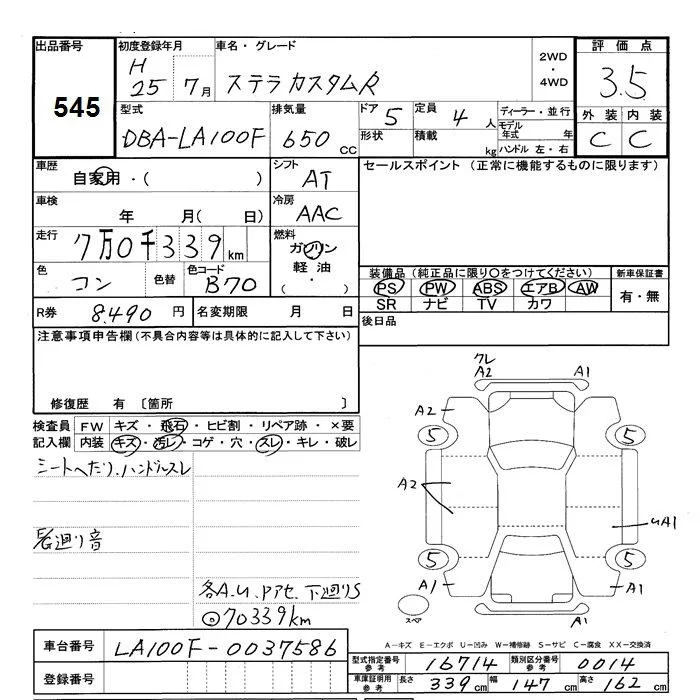 出品番号
545
初度登録年月
H
25 7月
車名・グレード
ステラカスタムR
2WD
・
4WD
評価点
3.5
外装 内装
C C
型式
DBA-LA100F
排気量
650 CC
ドア 5
形状
定員 4 人
積載 kg
ディーラー・並行
モデル年式 年
ハンドル 左・右
車歴
自家用・( )
シフト
AT
セールスポイント (正常に機能するものに限ります)
車検
年 月( 日)
冷房
AAC
走行
7万0千339km
燃料
ガソリン
軽油
・( )
色
コン
色替
色コード
B70
装備品(純正品に限り〇をつけてください)
PS PW ABS エアB AW
SR ナビ TV カワ
新車保証書
有・無
R券 8,490 円
名変期限 月 日
後日品
注意事項申告欄(不具合内容等は具体的に記入して下さい)
修復歴 有〔箇所 〕
検査員 FW キズ・飛石・ヒビ割・リペア跡・×要
記入欄 内装 キズ・汚レ・コゲ・穴・スレ・キレ・破レ
シートへたり、ハンドルスレ
E/G廻り音
各A.U.Pアセ、下廻りS
◎70339km
クレ
A2 A1
A2
5 5
A2
UA1
5 5
A1 A1
スペア
A1
A-キズ E-エクボ U-凹み W-補修跡 S-サビ C-腐食 XX-交換済
車台番号 LA100F-0037586
登録番号
型式指定番号参考 16714
類別区分番号参考 0014
車庫証明用参考 長さ 339cm 幅 147cm 高さ 162cm